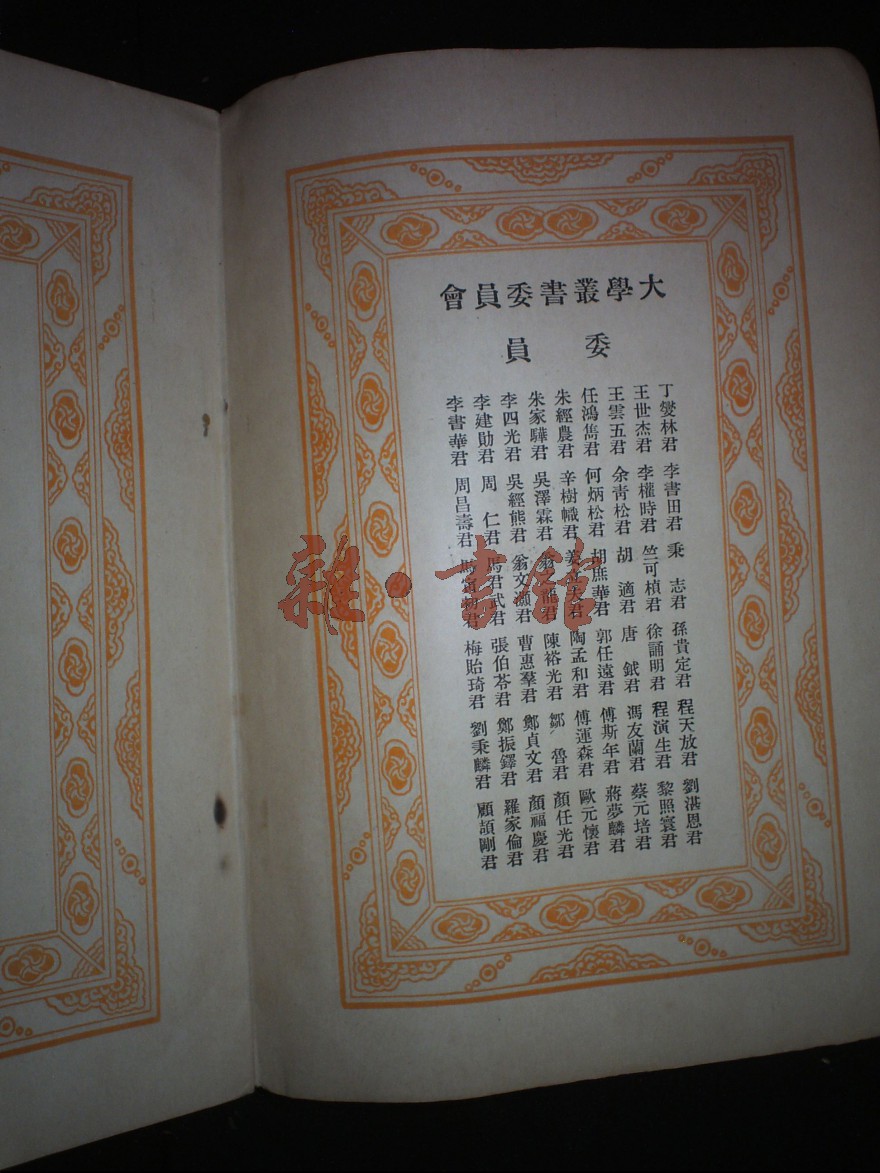 大學叢書委員會
委員
丁燮林君 李書田君 秉志君 孫貴定君 程天放君 劉湛恩君
王世杰君 李權時君 竺可楨君 徐誦明君 程演生君 黎照寰君
王雲五君 余青松君 胡適君 唐鉞君 馮友蘭君 蔡元培君
任鴻雋君 何炳松君 胡庶華君 郭任遠君 傅斯年君 蔣夢麟君
朱經農君 辛樹幟君 姜立夫君 陶孟和君 傅運森君 歐元懷君
朱家驊君 吳澤霖君 翁之龍君 陳裕光君 鄒魯君 顏任光君
李四光君 吳經熊君 翁文灝君 曹惠羣君 鄭貞文君 顏福慶君
李建勛君 周仁君 馬君武君 張伯苓君 鄭振鐸君 羅家倫君
李書華君 周昌壽君 馬寅初君 梅貽琦君 劉秉麟君 顧頡剛君
雜·書館